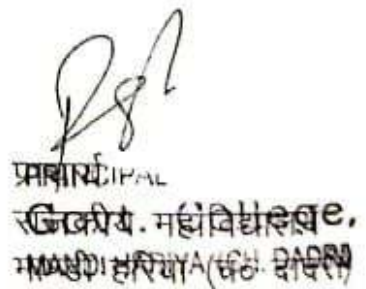 प्राचार्य PRINCIPAL
राजकीय महाविद्यालय College,
हरिया (च० दादरी) MANDI HARIYA (CH. DADRI)